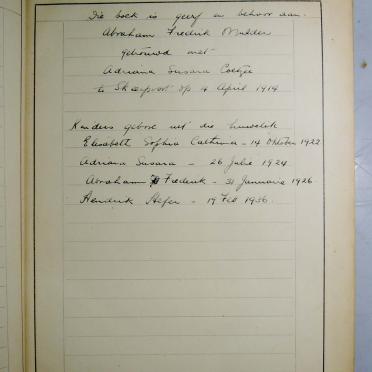 Die boek is geerf en behoor aan.
Abraham Frederik Mulder
getrouwd met
Adriana Susara Coetzee
te Skeerpoort op 4 April 1914
Kinders gebore uit die huwelik
Elisabett Sophia Catherina - 14 Oktober 1922
Adriana Susara - 26 Julie 1924
Abraham Frederik - 31 Januarie 1926.
Hendrik Stefer - 19 Feb 1936.